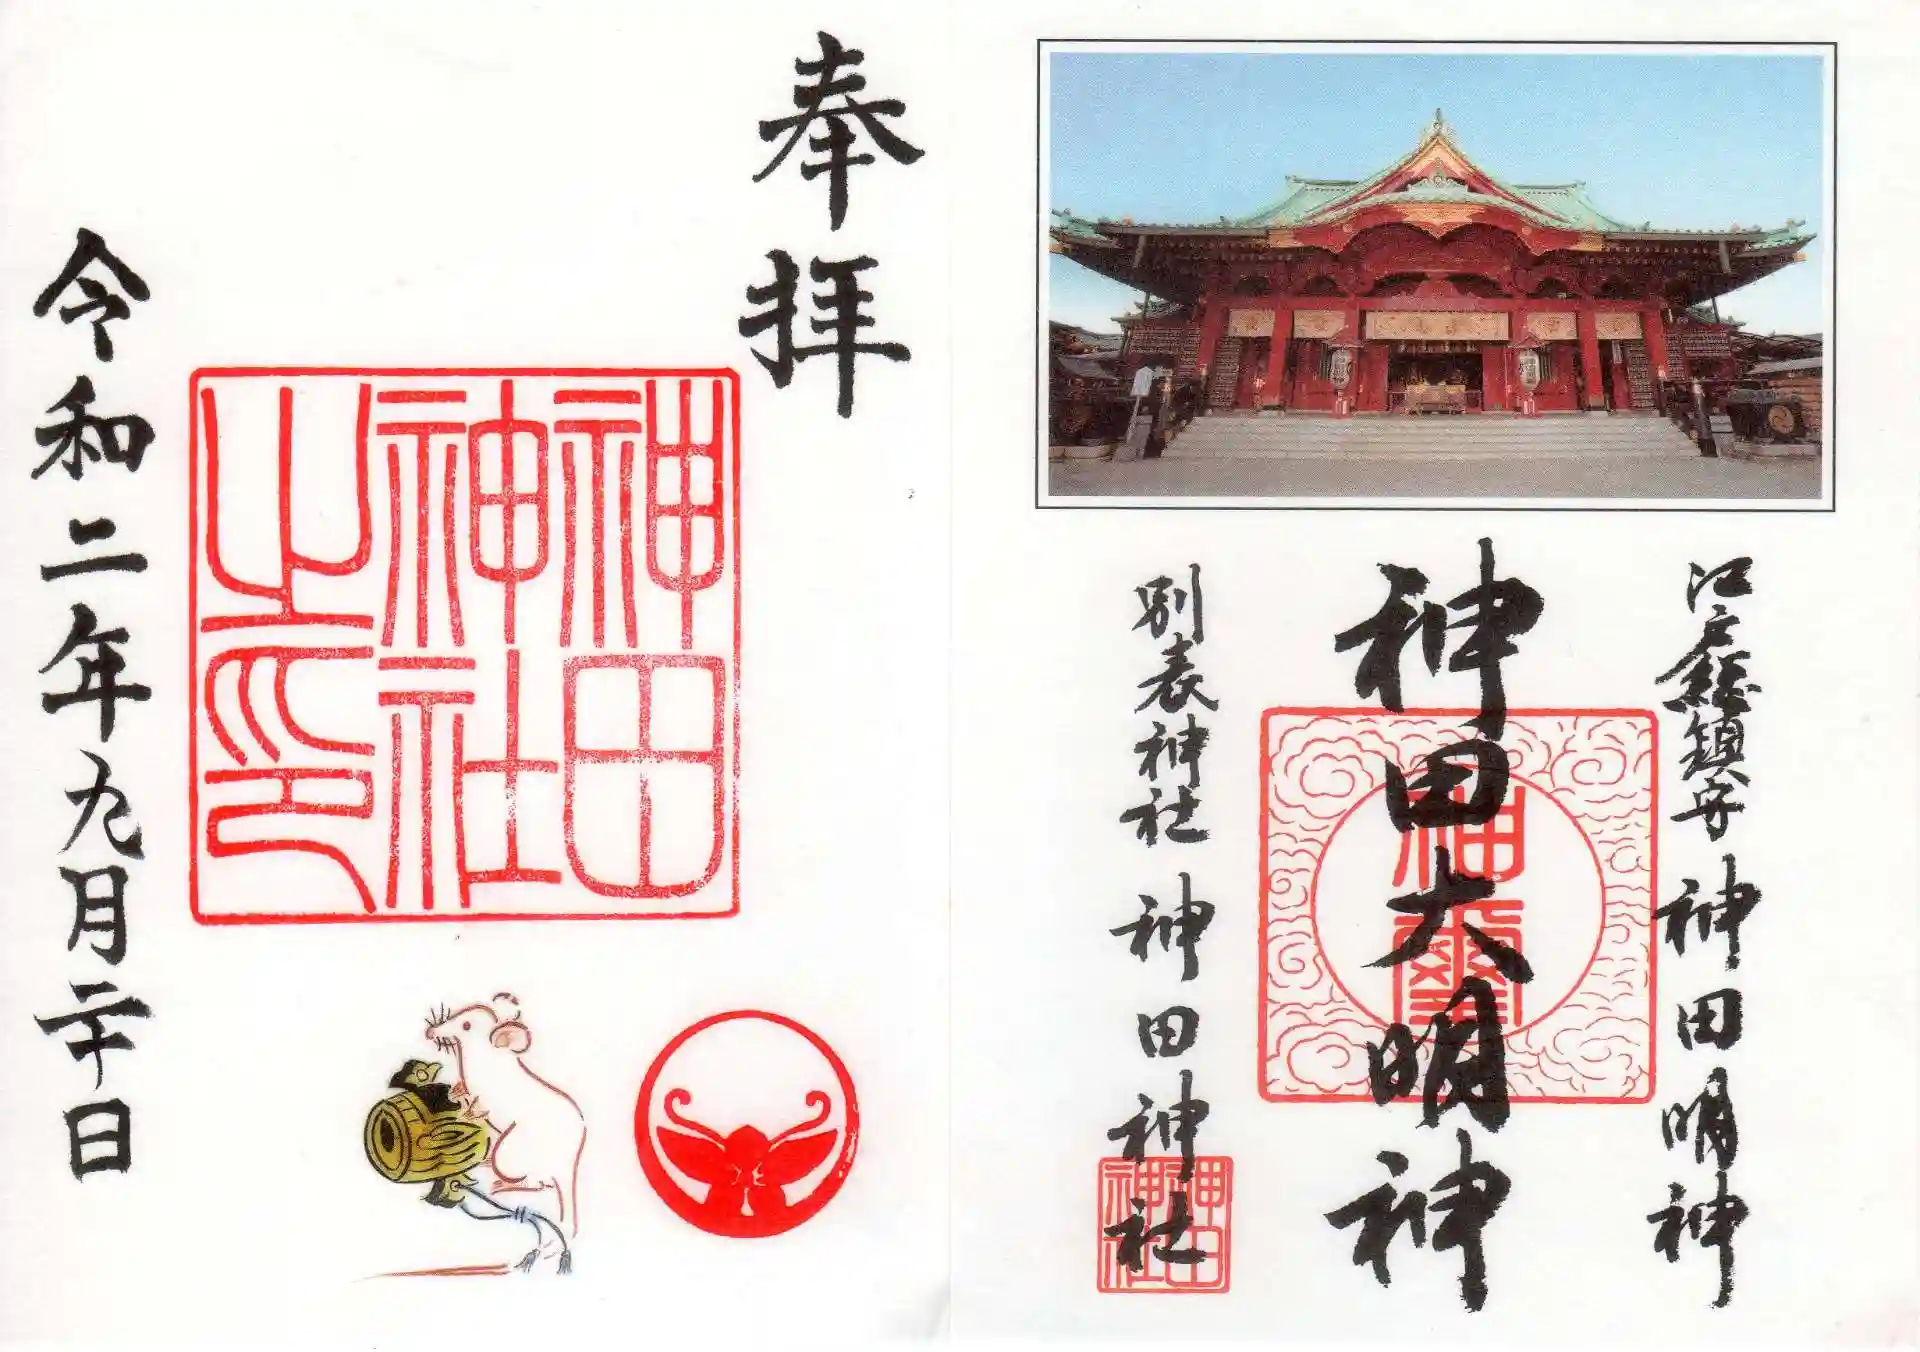 江戸総鎮守 神田明神
神田大明神
神璽
別表神社 神田神社
神田
神社
奉拝
神田
神社
之印
令和二年九月二十日